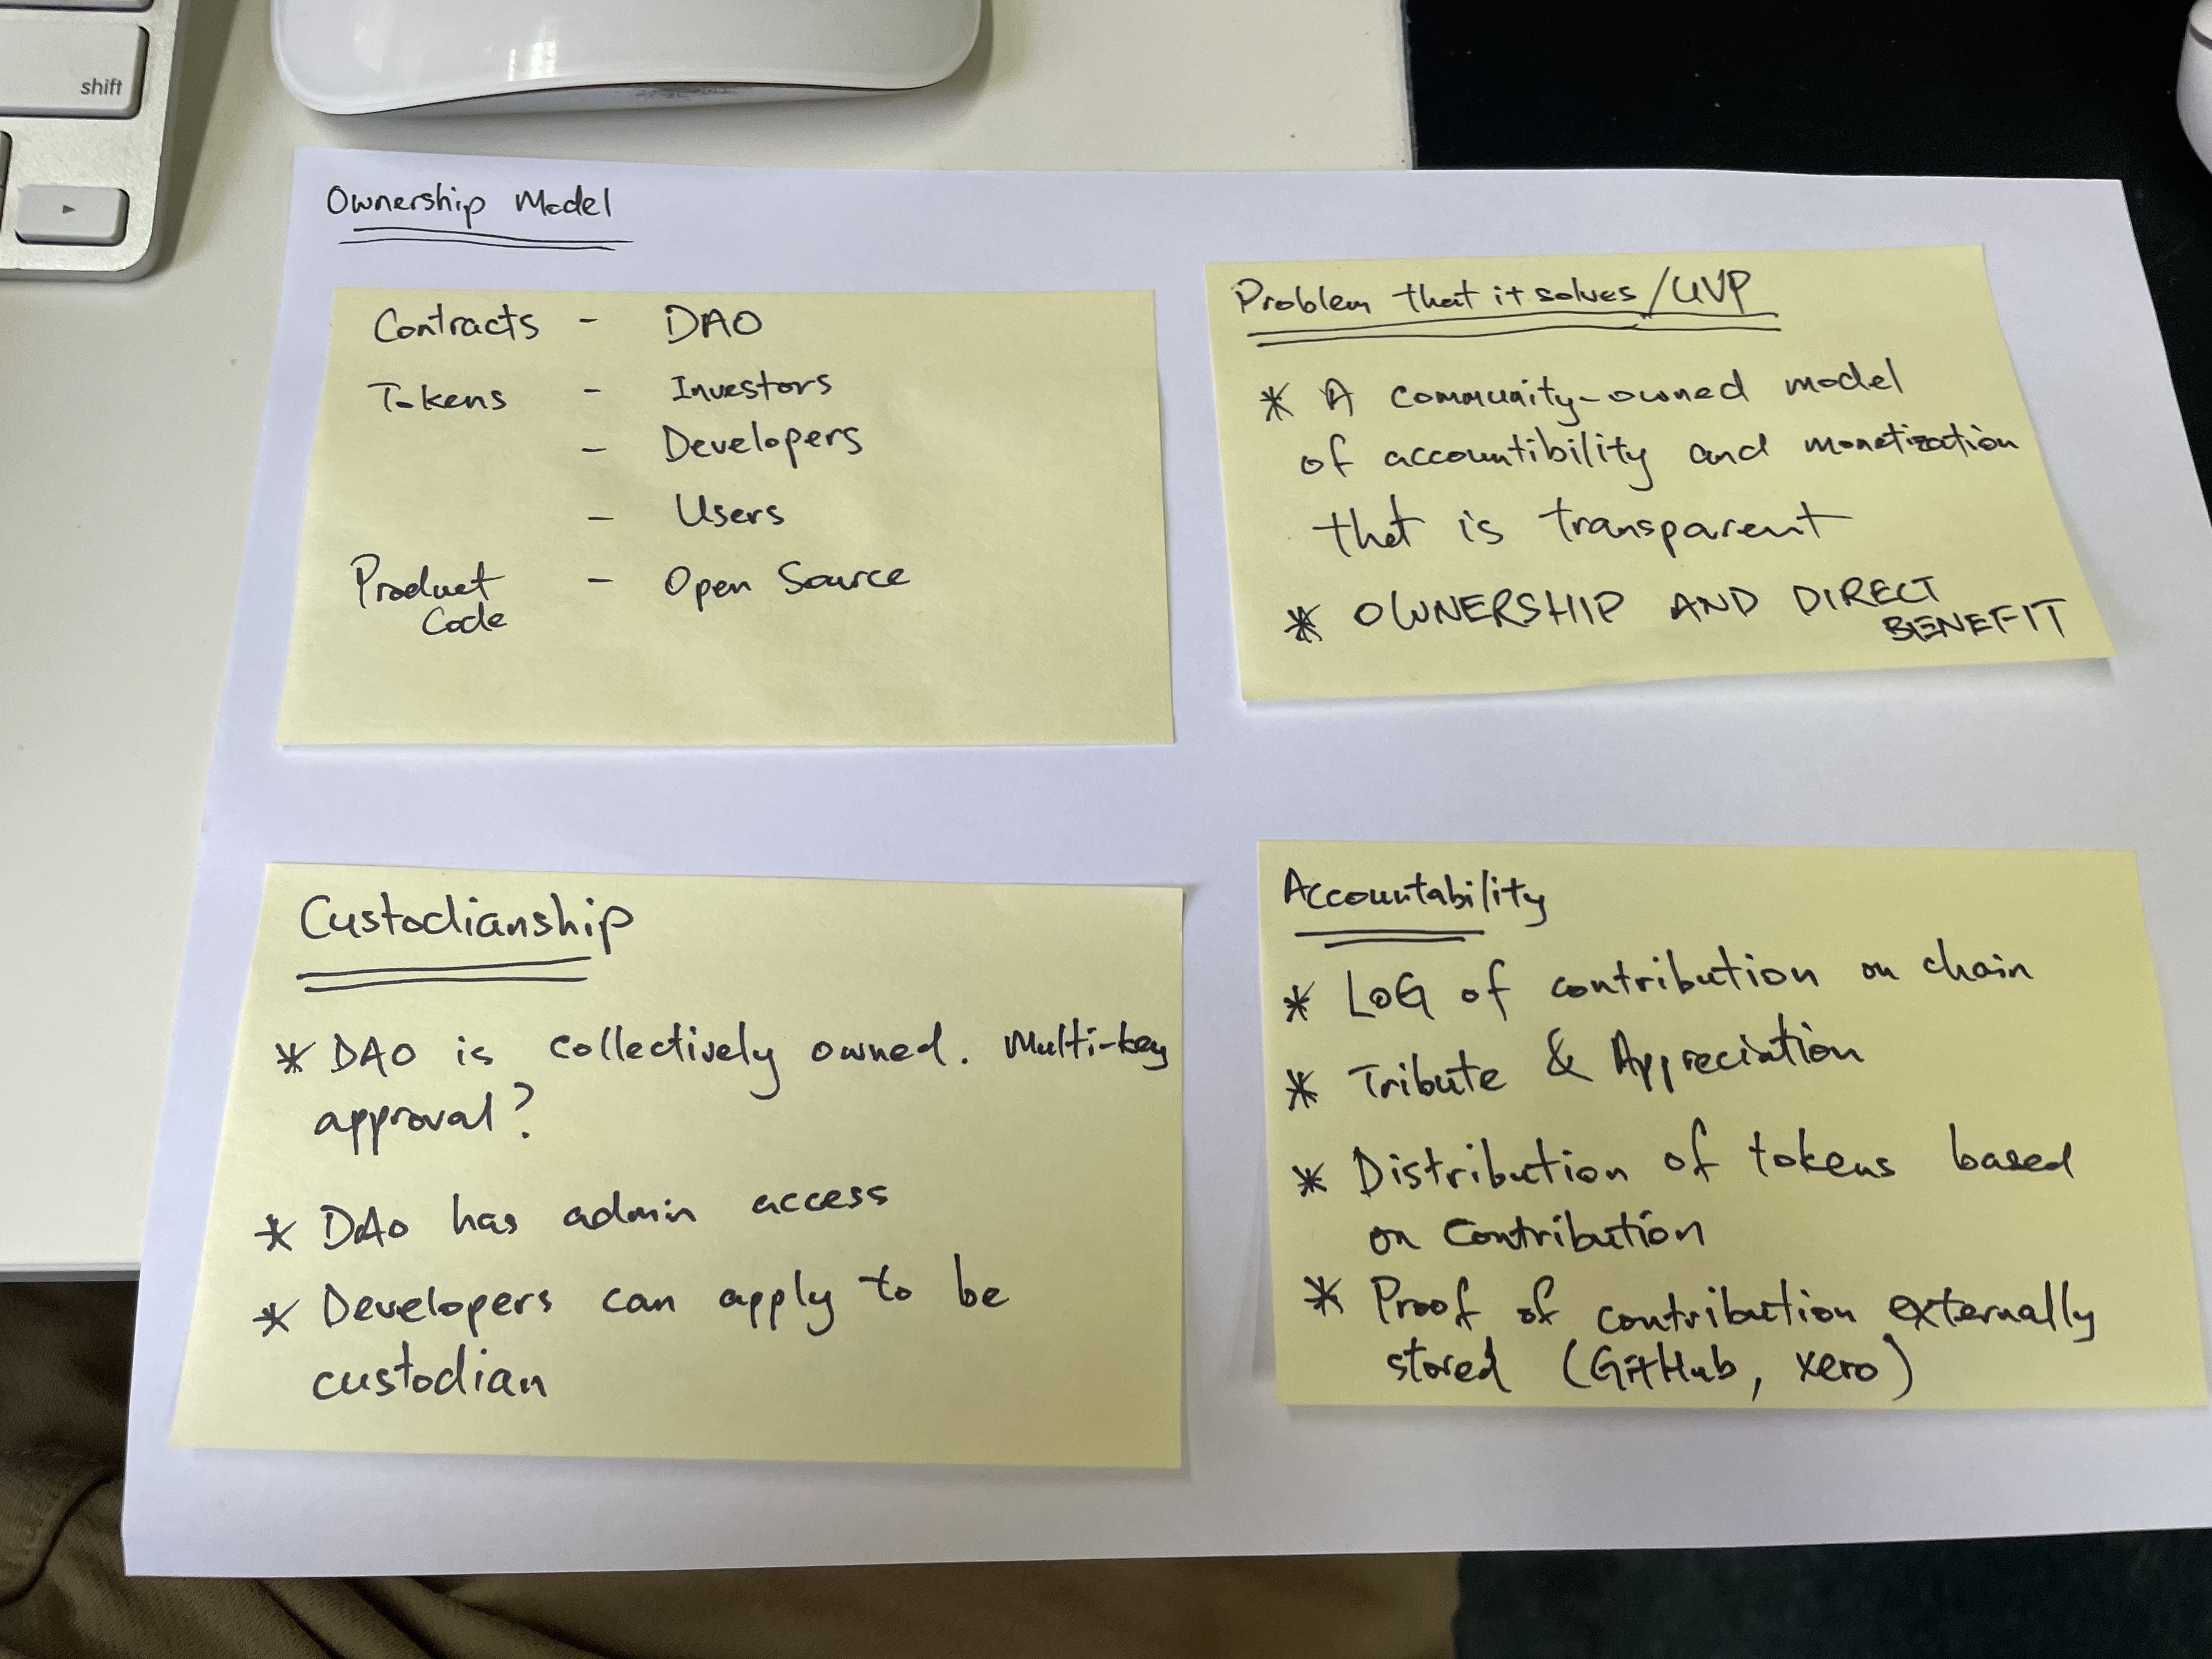 shift
Ownership Model
Contracts - DAO
Tokens - Investors
- Developers
- Users
Product - Open Source
Code
Problem that it solves/UVP
* A community-owned model
of accountibility and monetization
that is transparent
* OWNERSHIP AND DIRECT
BENEFIT
Custodianship
* DAO is collectively owned. Multi-key
approval?
* DAO has admin access
* Developers can apply to be
custodian
Accountability
* LOG of contribution on chain
* Tribute & Appreciation
* Distribution of tokens based
on Contribution
* Proof of contribution externally
stored (GitHub, xero)